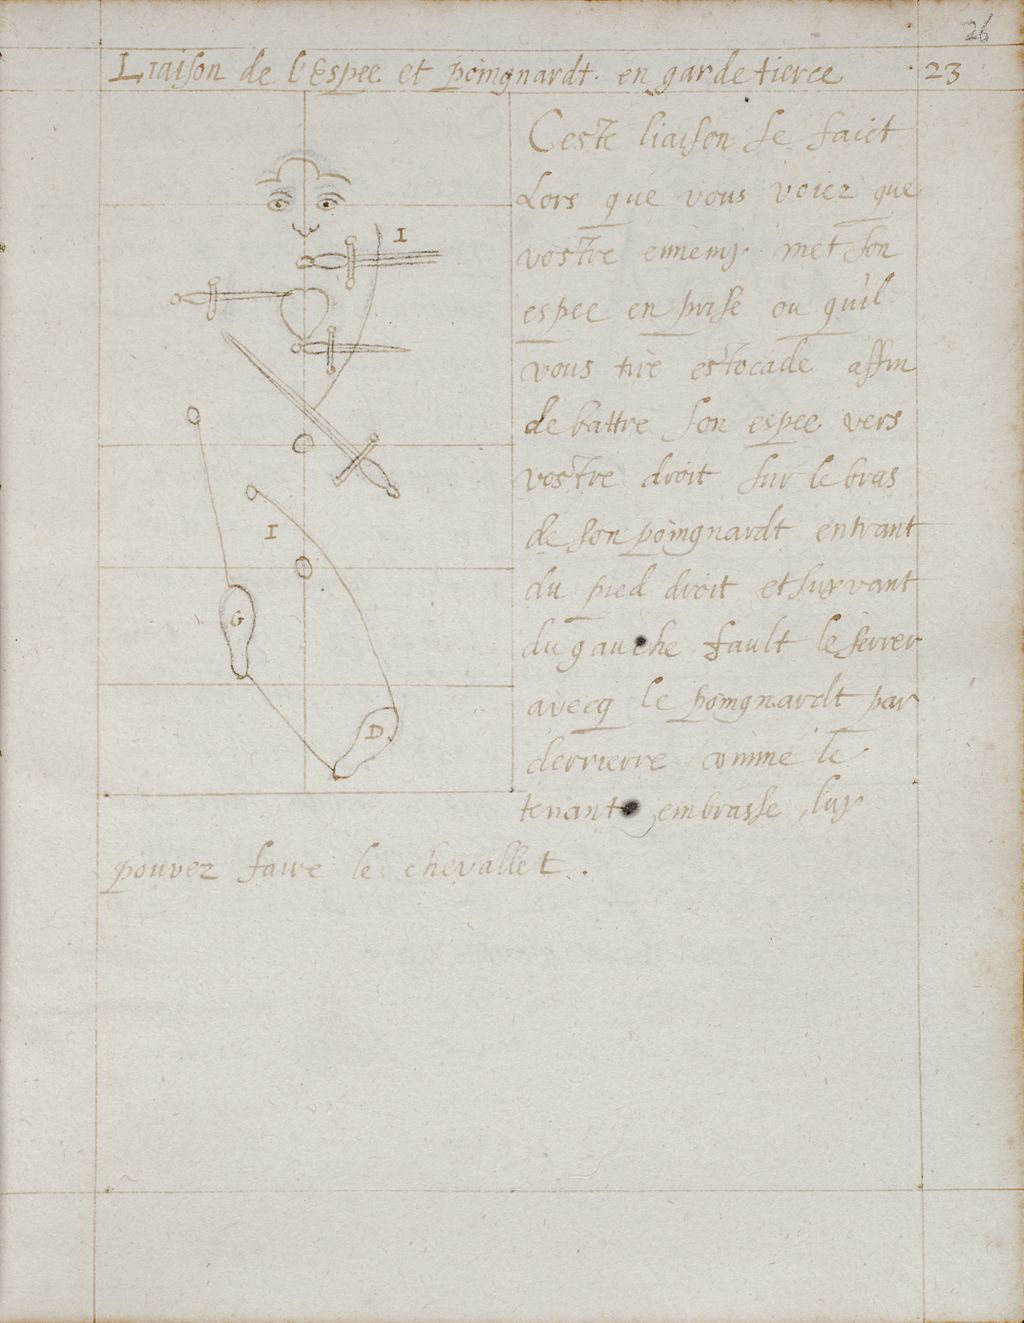 26
Liaison de l'Espee et poingnardt. en garde tierce
23
Ceste liaison se faict
Lors que vous voiez que
vostre ennemy met son
espee en prise ou qu'il
vous tire estocade affin
de battre son espee vers
vostre droit sur le bras
de son poingnardt entrant
du pied droit et suyvant
du gauche fault le serrer
avecq le poingnardt par
derrierre comme le
tenant embrasse, luy
pouvez faire le chevallet.
I
I
G
D